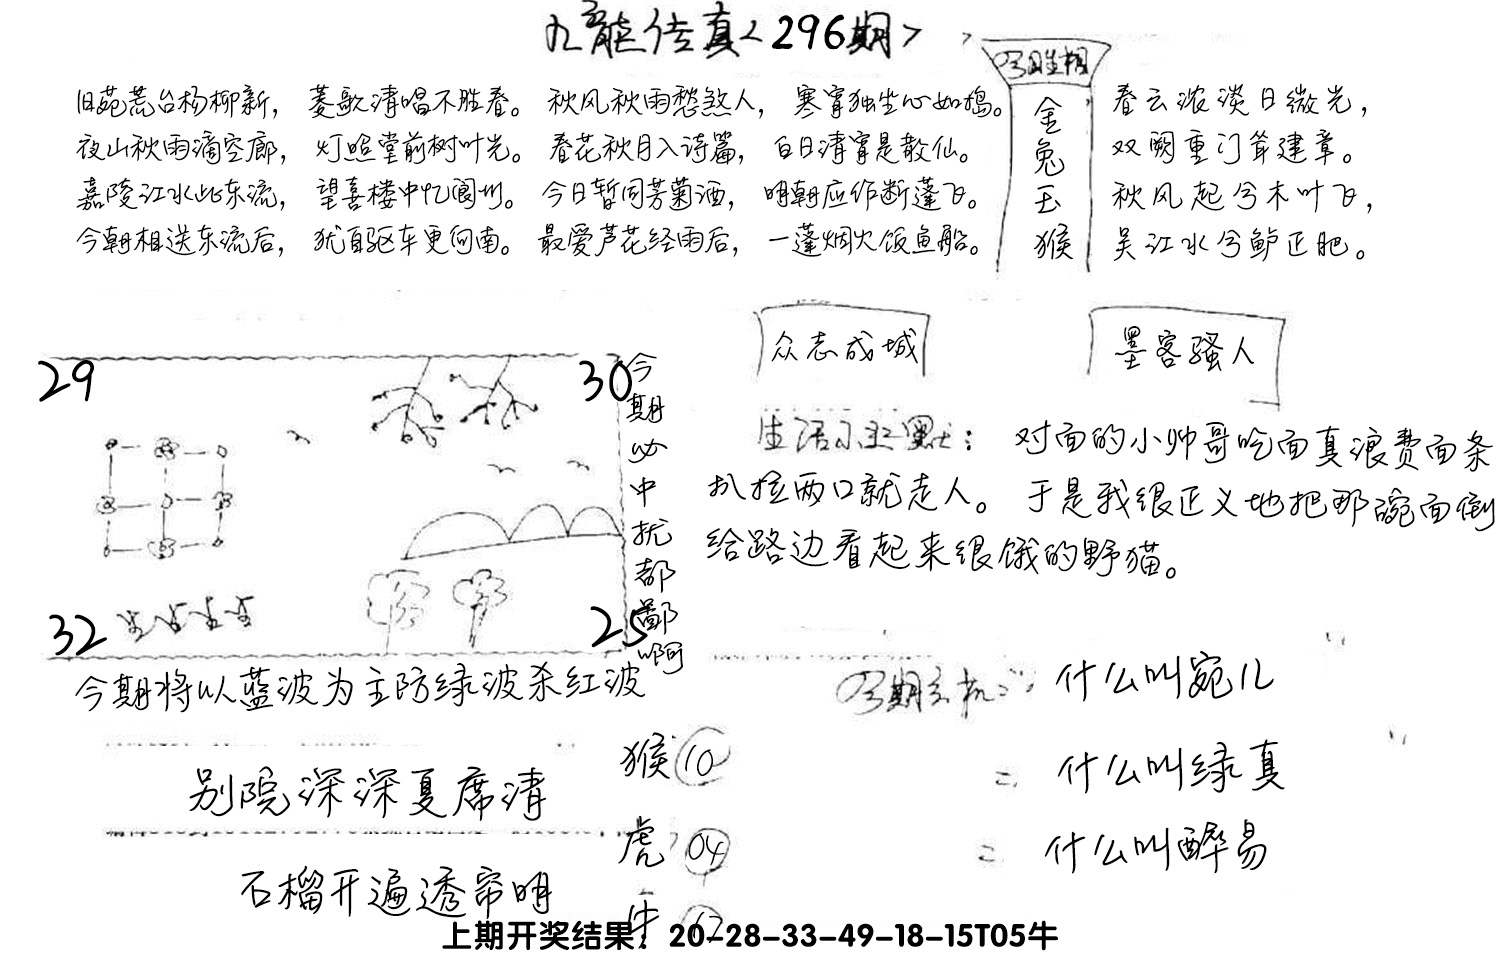 九龙传真<296期>
旧苑荒台杨柳新， 菱歌清唱不胜春。 秋风秋雨愁煞人， 寒宵独坐心如捣。
夜山秋雨滴空廊， 灯照堂前树叶光。 春花秋月入诗篇， 白日清宵是散仙。
嘉陵江水此东流， 望喜楼中忆阆州。 今日暂同芳菊酒， 明朝应作断蓬飞。
今朝相送东流后， 犹自驱车更向南。 最爱芦花经雨后， 一蓬烟火饭鱼船。
今日生相
金兔玉猴
春云浓淡日微光，
双阙重门耸建章。
秋风起兮木叶飞，
吴江水兮鲈正肥。
众志成城
墨客骚人
29
30
32
25
今期必中扰都鄙啊
生活小幽默： 对面的小帅哥吃面真浪费面条
扒拉两口就走人。 于是我很正义地把那碗面倒
给路边看起来很饿的野猫。
今期将以蓝波为主防绿波杀红波
今期玄机： 什么叫宛儿
= 什么叫绿真
= 什么叫醉易
别院深深夏席清
石榴开遍透帘明
猴 10
虎 04
牛
上期开奖结果：20-28-33-49-18-15T05牛